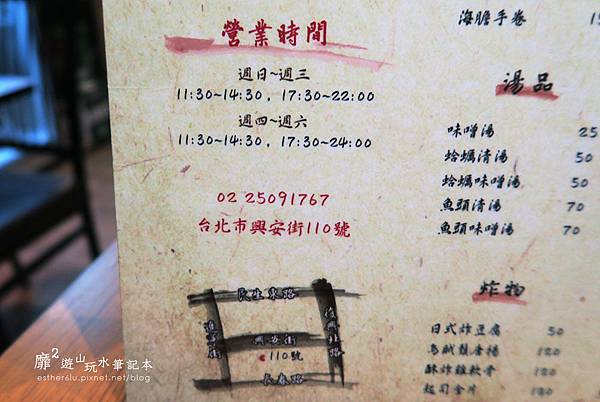 營業時間
週日~週三
11:30~14:30 , 17:30~22:00
週四~週六
11:30~14:30 , 17:30~24:00
02 25091767
台北市興安街110號
民生東路
復興北路
興安街
110號
長春路
海膽手卷
湯品
味噌湯 25
蛤蠣清湯 50
蛤蠣味噌湯 50
魚頭清湯 70
魚頭味噌湯 70
炸物
日式炸豆腐 50
酥炸雞軟骨 120
靡2遊山玩水筆記本
esther6lu.pixnet.net/blog